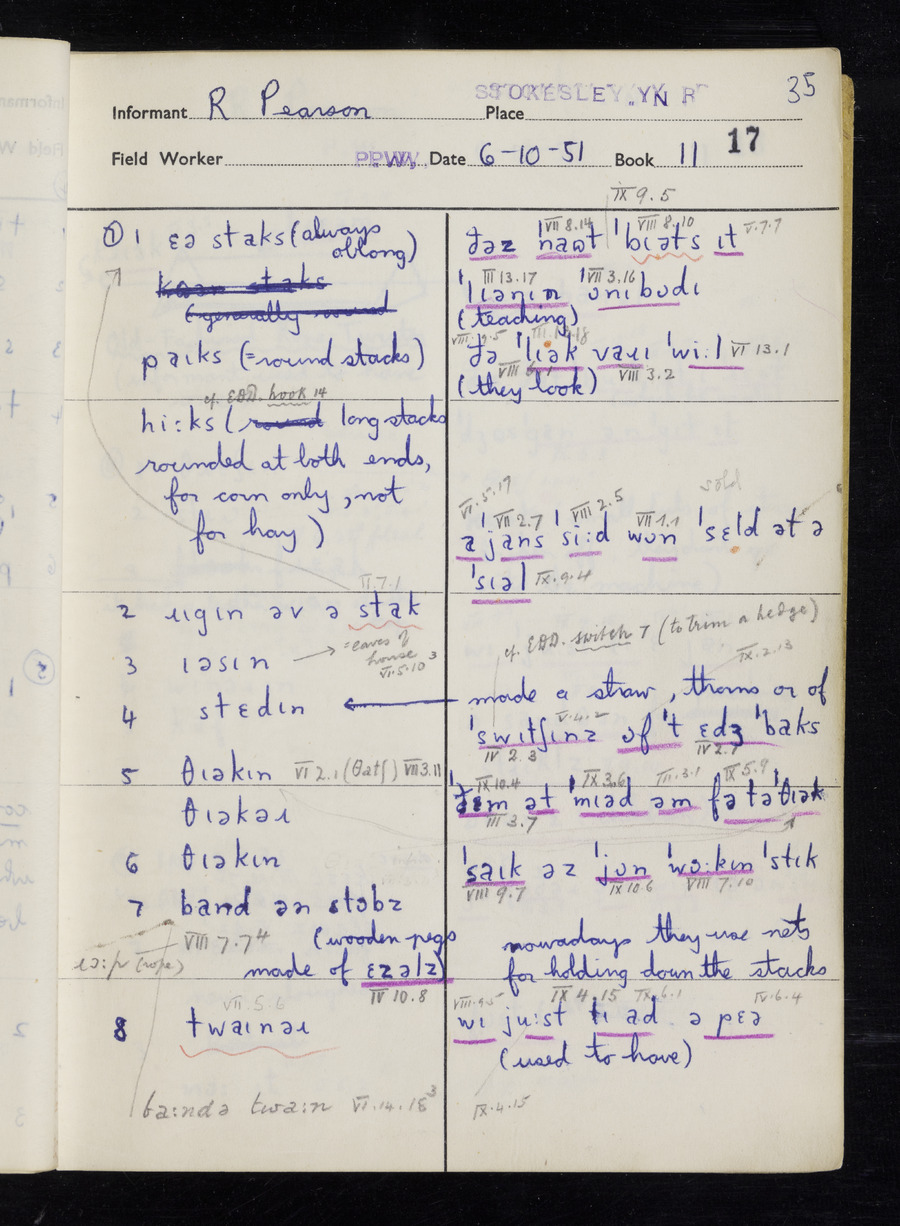 35
STOKESLEY. YN R
Informant R Pearson Place
Field Worker P.P.W.W. Date 6-10-51 Book 11 17
IX 9.5
① 1 ɛə staks (always
oblong)
(generally round
paɪks (=round stacks)
cf. EDD. hook 14
hi:ks (round long stacks
rounded at both ends,
for corn only, not
for hay)
II.7.1
2 ɹɪgɪn əv ə stak
3 ɪəsɪn → =eaves of
house
VI.5.10³
4 stɛdɪn
5 θɪəkɪn VI 2.1 (θatʃ) VII 3.11
θɪəkəɹ
6 θɪəkɪn
7 band ən stobz
VIII 7.7⁴ (wooden pegs
(rope) made of ɛzəlz)
IV 10.8
VII.5.6
8 twaɪnəɹ
ba:nd ə twa:ɪn VI.14.18³
VII 8.14 VIII 8.10 V.7.7
ðəz nawt 'bɪəts ɪt
III 13.17 VII 3.16
'lɪənɪn 'ʊnɪbʊdɪ
(teaching)
ðə 'lɪək vaɹɪ 'wi:l VI 13.1
(they look) VIII 3.2
sɛld
VI.5.17 VII 2.7 VIII 2.5 VII 1.1
ə 'jans 'si:d wʊn 'sɛld ət ə
'sɪəl IX.9.4
cf. EDD. switch 7 (to trim a hedge)
IX.2.13
made a straw, thorns or of
V.4.2
'swɪtʃɪnz ʊf 't ɛdʒ 'baks
IV 2.3 IV 2.7
IX 10.4 IX 3.6 III.3.1 IX 5.9
'ðɛm ət 'mɪəd əm fə tə 'θɪək
III 3.7
'saɪk əz 'jʊn 'wɔ:kɪn 'stɪk
VIII 9.7 IX 10.6 VIII 7.10
nowadays they use nets
for holding down the stacks
VIII.9.5 IX 4.15 IX.6.1 IV.6.4
wɪ ju:st tɪ ad ə pɛə
(used to have)
IX.4.15